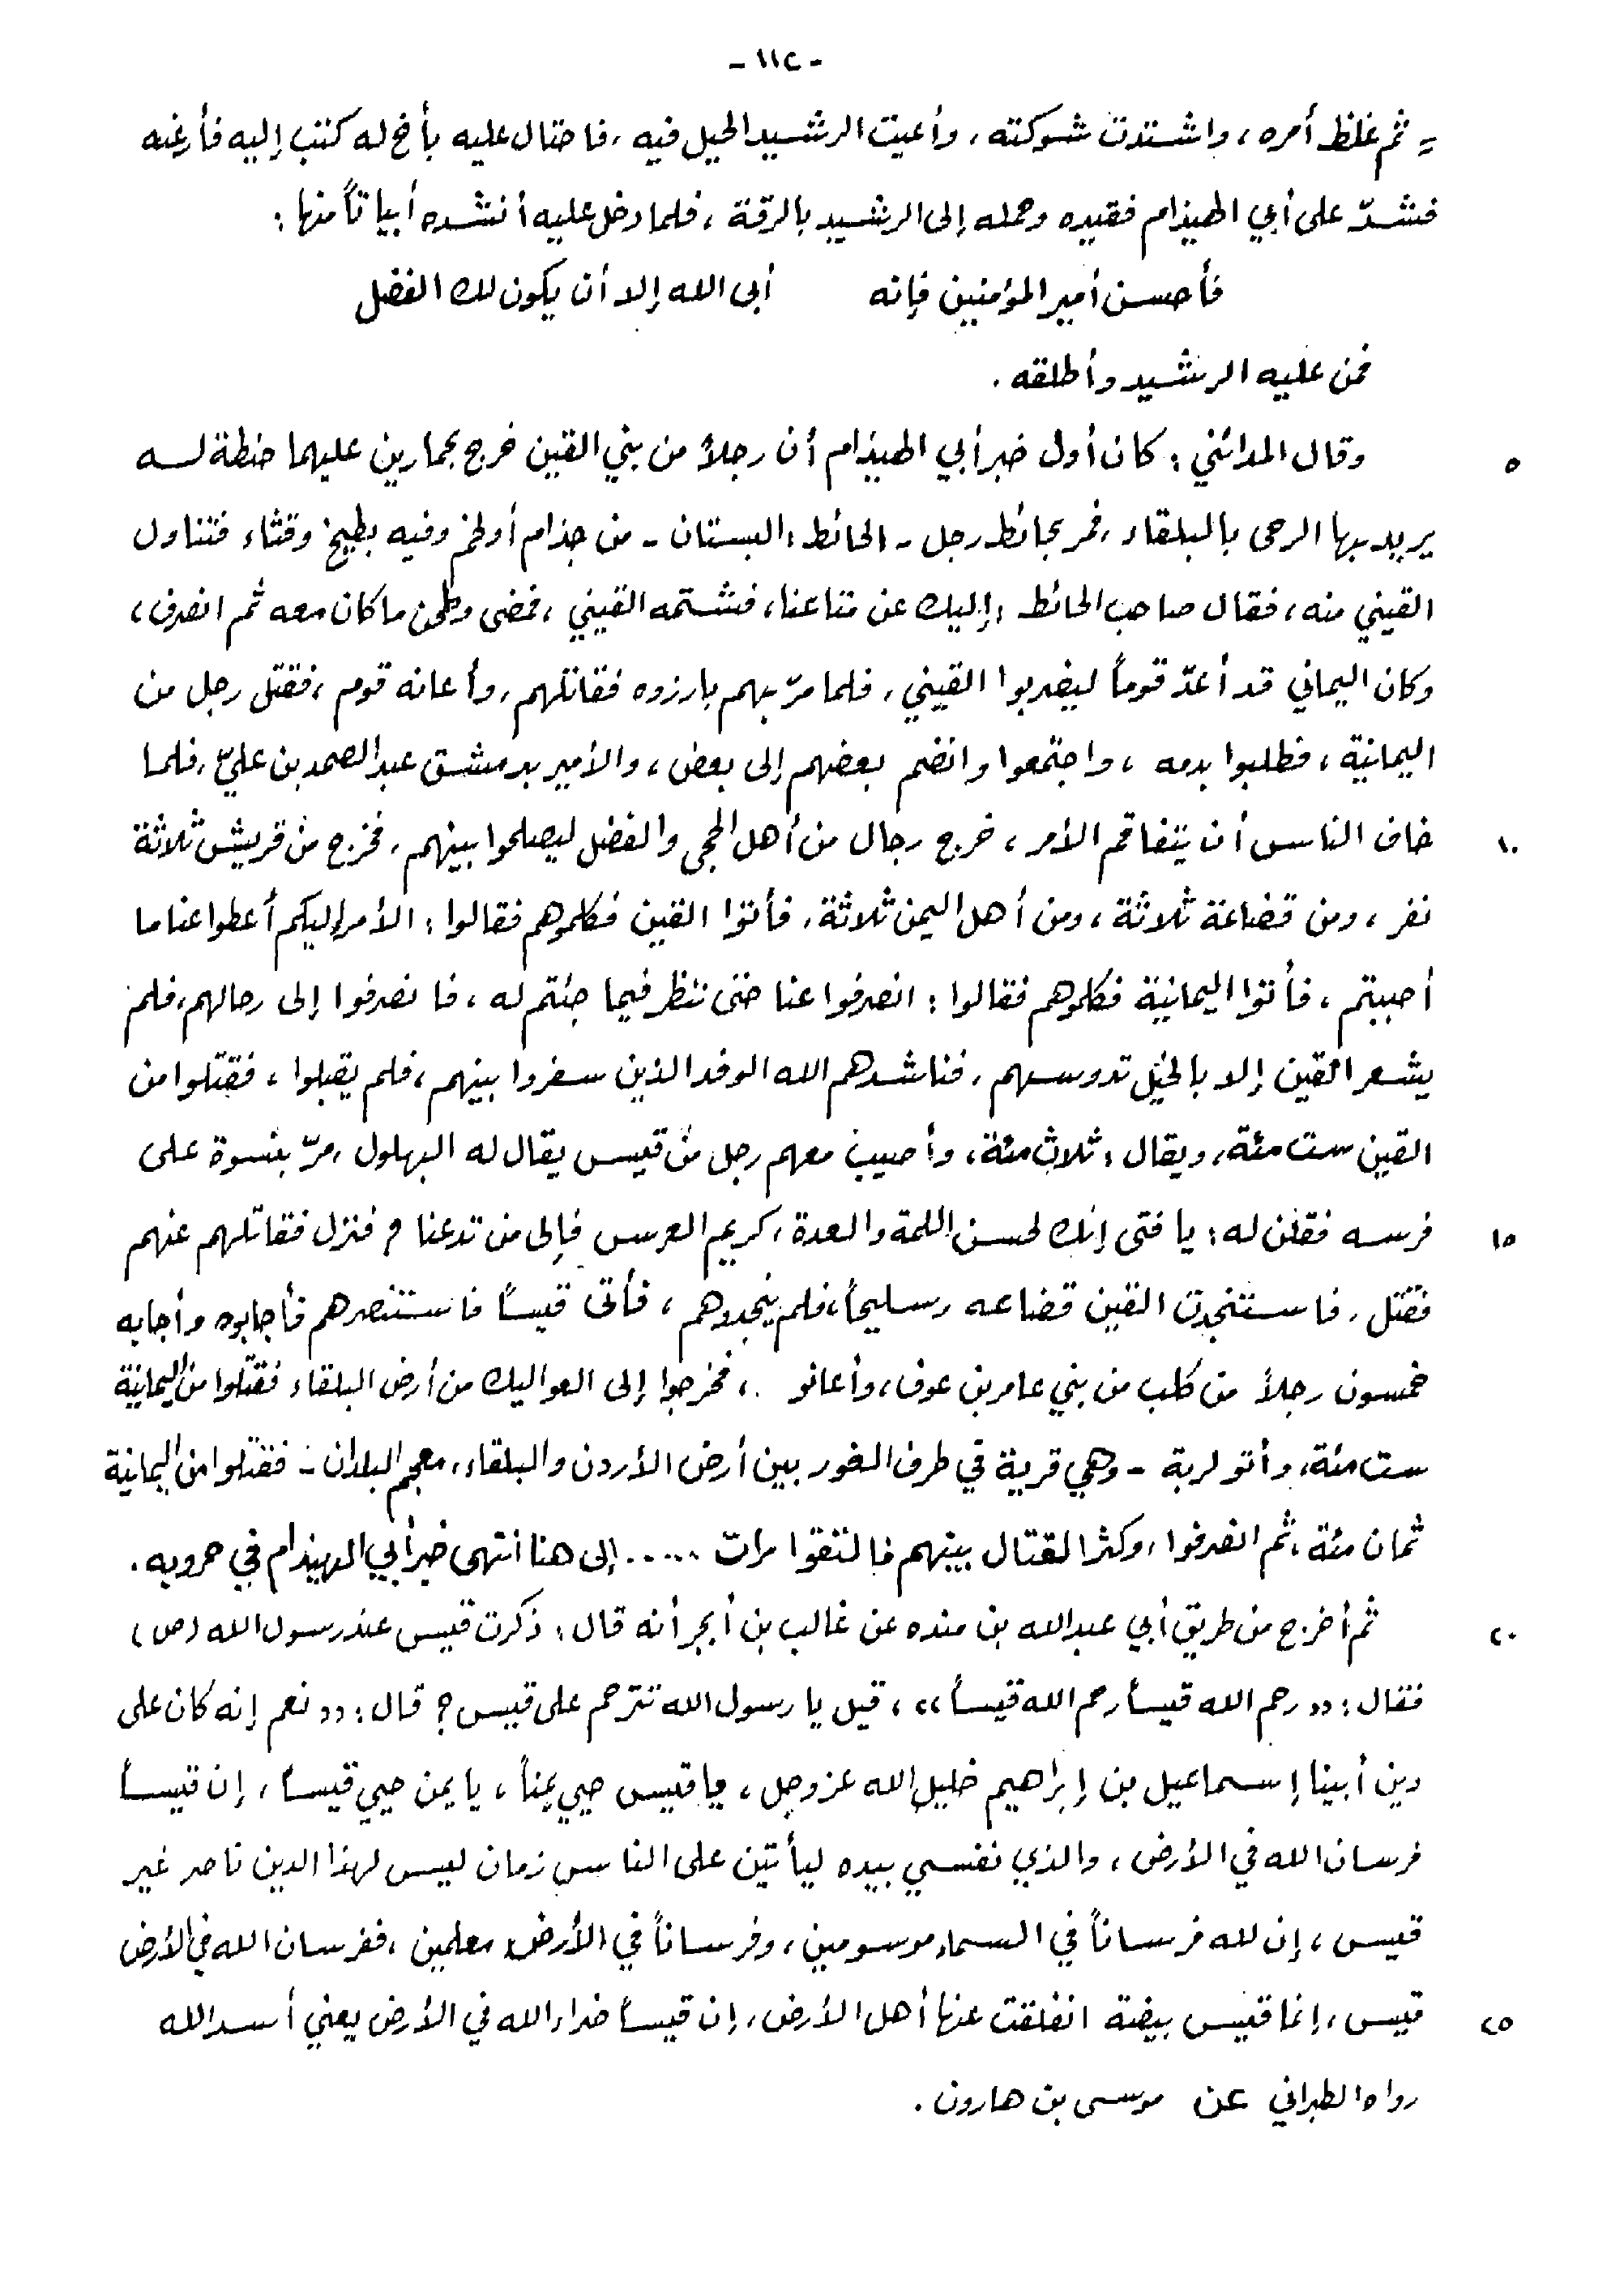 - ١١٢ -
= ثم غلظ أمره، واشتدت شوكته، وأعيت الرشيد الحيل فيه، فاحتال عليه بأخ له كتب إليه فأرغبه
فشدّ على أبي الهيذام فقيده وحمله إلى الرشيد بالرقة، فلما دخل عليه أنشده أبياتاً منها:
فأحسن أمير المؤمنين فإنه أبى الله إلا أن يكون لك الفضل
فمن عليه الرشيد وأطلقه.
٥ وقال المدائني: كان أول خبر أبي الهيذام أن رجلاً من بني القين خرج بحمارين عليهما حنطة لـه
يريد بها الرحى بالبلقاء، فمر بحائط رجل - الحائط: البستان - من جذام أو لخم وفيه بطيخ وقثاء فتناول
القيني منه، فقال صاحب الحائط: إليك عن متاعنا، فشتمه القيني، فمضى وطحن ما كان معه ثم انصرف،
وكان اليماني قد أعدّ قوماً ليضربوا القيني، فلما مرّ بهم بارزوه فقاتلهم، وأعانه قوم، فقتل رجل من
اليمانية، فطلبوا بدمه، واجتمعوا وانضم بعضهم إلى بعض، والأمير بدمشق عبد الصمد بن عليّ، فلما
١٠ خاف الناس أن يتفاقم الأمر، خرج رجال من أهل الحجى والفضل ليصلحوا بينهم، فخرج من قريش ثلاثة
نفر، ومن قضاعة ثلاثة، ومن أهل اليمن ثلاثة، فأتوا القين فكلموهم فقالوا: الأمر إليكم أعطوا عنا ما
أحببتم، فأتوا اليمانية فكلموهم فقالوا: انصرفوا عنا حتى ننظر فيما جئتم له، فانصرفوا إلى رحالهم، فلم
يشعر القين إلا بالخيل تدوسهم، فناشدهم الله الوفد الذين سفروا بينهم، فلم يقبلوا، فقتلوا من
القين ست مئة، ويقال: ثلاث مئة، وأصيب معهم رجل من قيس يقال له البهلول، مرّ بنسوة على
١٥ فرسه فقلن له: يا فتى إنك لحسن اللمة والعدة، كريم العرس فإلى من تدعنا؟ فنزل فقاتلهم عنهم
فقتل، فاستنجدت القين قضاعه وسليحاً، فلم ينجدوهم، فأتى قيساً فاستنصرهم فأجابوه وأجابه
خمسون رجلاً من كلب من بني عامر بن عوف، وأعانو .، فخرجوا إلى العواليك من أرض البلقاء فقتلوا من اليمانية
ست مئة، وأتو لربة - وهي قرية في طرف الغور بين أرض الأردن والبلقاء، معجم البلدان - فقتلوا من اليمانية
ثمان مئة، ثم انصرفوا، وكثر القتال بينهم فالتقوا مرات ..... إلى هنا انتهى خبر أبي الهيذام في حروبه.
٢٠ ثم أخرج من طريق أبي عبد الله بن منده عن غالب بن أبجر أنه قال: ذكرت قيس عند رسول الله (ص)
فقال: «رحم الله قيساً رحم الله قيساً»، قيل يا رسول الله تترحم على قيس؟ قال: «نعم إنه كان على
دين أبينا إسماعيل بن إبراهيم خليل الله عز وجل، يا قيس حيي يمناً، يا يمن حيي قيساً، إن قيساً
فرسان الله في الأرض، والذي نفسي بيده ليأتين على الناس زمان ليس لهذا الدين ناصر غير
قيس، إن لله فرساناً في السماء موسومين، وفرساناً في الأرض معلمين، ففرسان الله في الأرض
٢٥ قيس، إنما قيس بيضة انفلقت عنها أهل الأرض، إن قيساً ضراء الله في الأرض يعني أسد الله
رواه الطبراني عن موسى بن هارون.